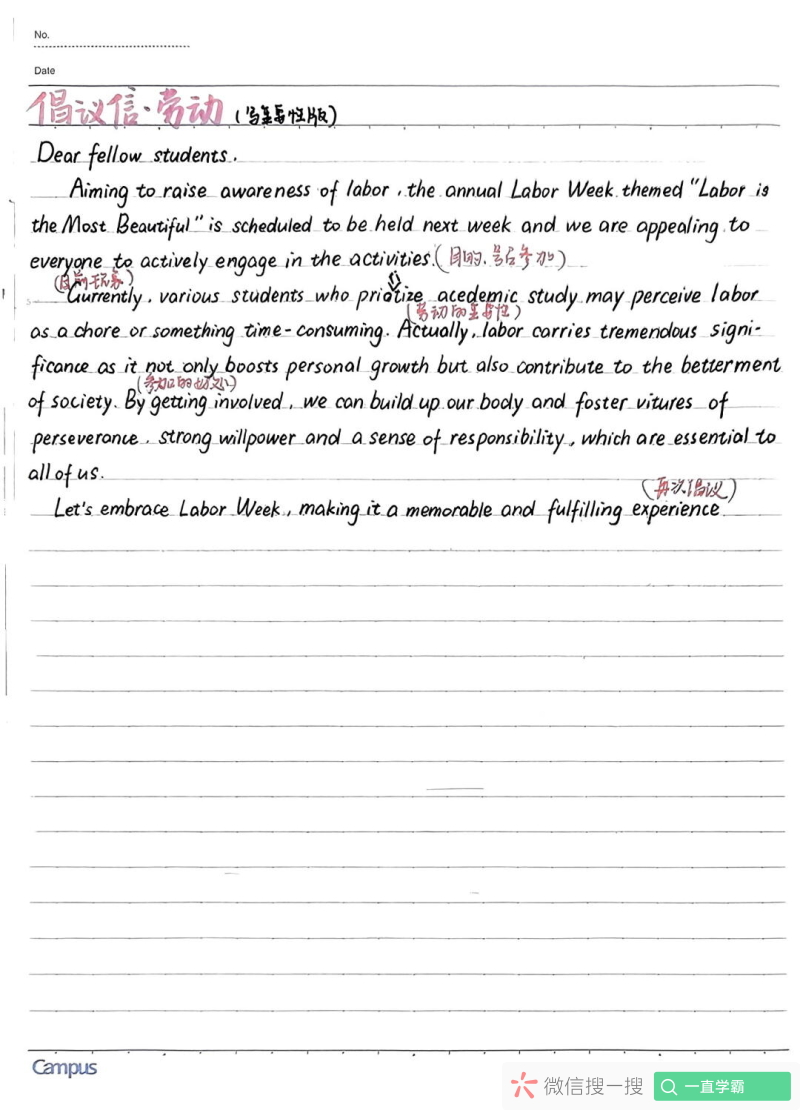 No.
Date
倡议信·劳动 (写重要性版)
Dear fellow students.
Aiming to raise awareness of labor, the annual Labor Week themed "Labor is
the Most Beautiful" is scheduled to be held next week and we are appealing to
everyone to actively engage in the activities. (目的、号召参加)
(目前现象)
Currently, various students who priotize acedemic study may perceive labor
(劳动的重要性)
as a chore or something time-consuming. Actually, labor carries tremendous signi-
ficance as it not only boosts personal growth but also contribute to the betterment
(参加的好处)
of society. By getting involved, we can build up our body and foster vitures of
perseverance, strong willpower and a sense of responsibility, which are essential to
all of us.
(再次倡议)
Let's embrace Labor Week, making it a memorable and fulfilling experience.
Campus
微信搜一搜
一直学霸